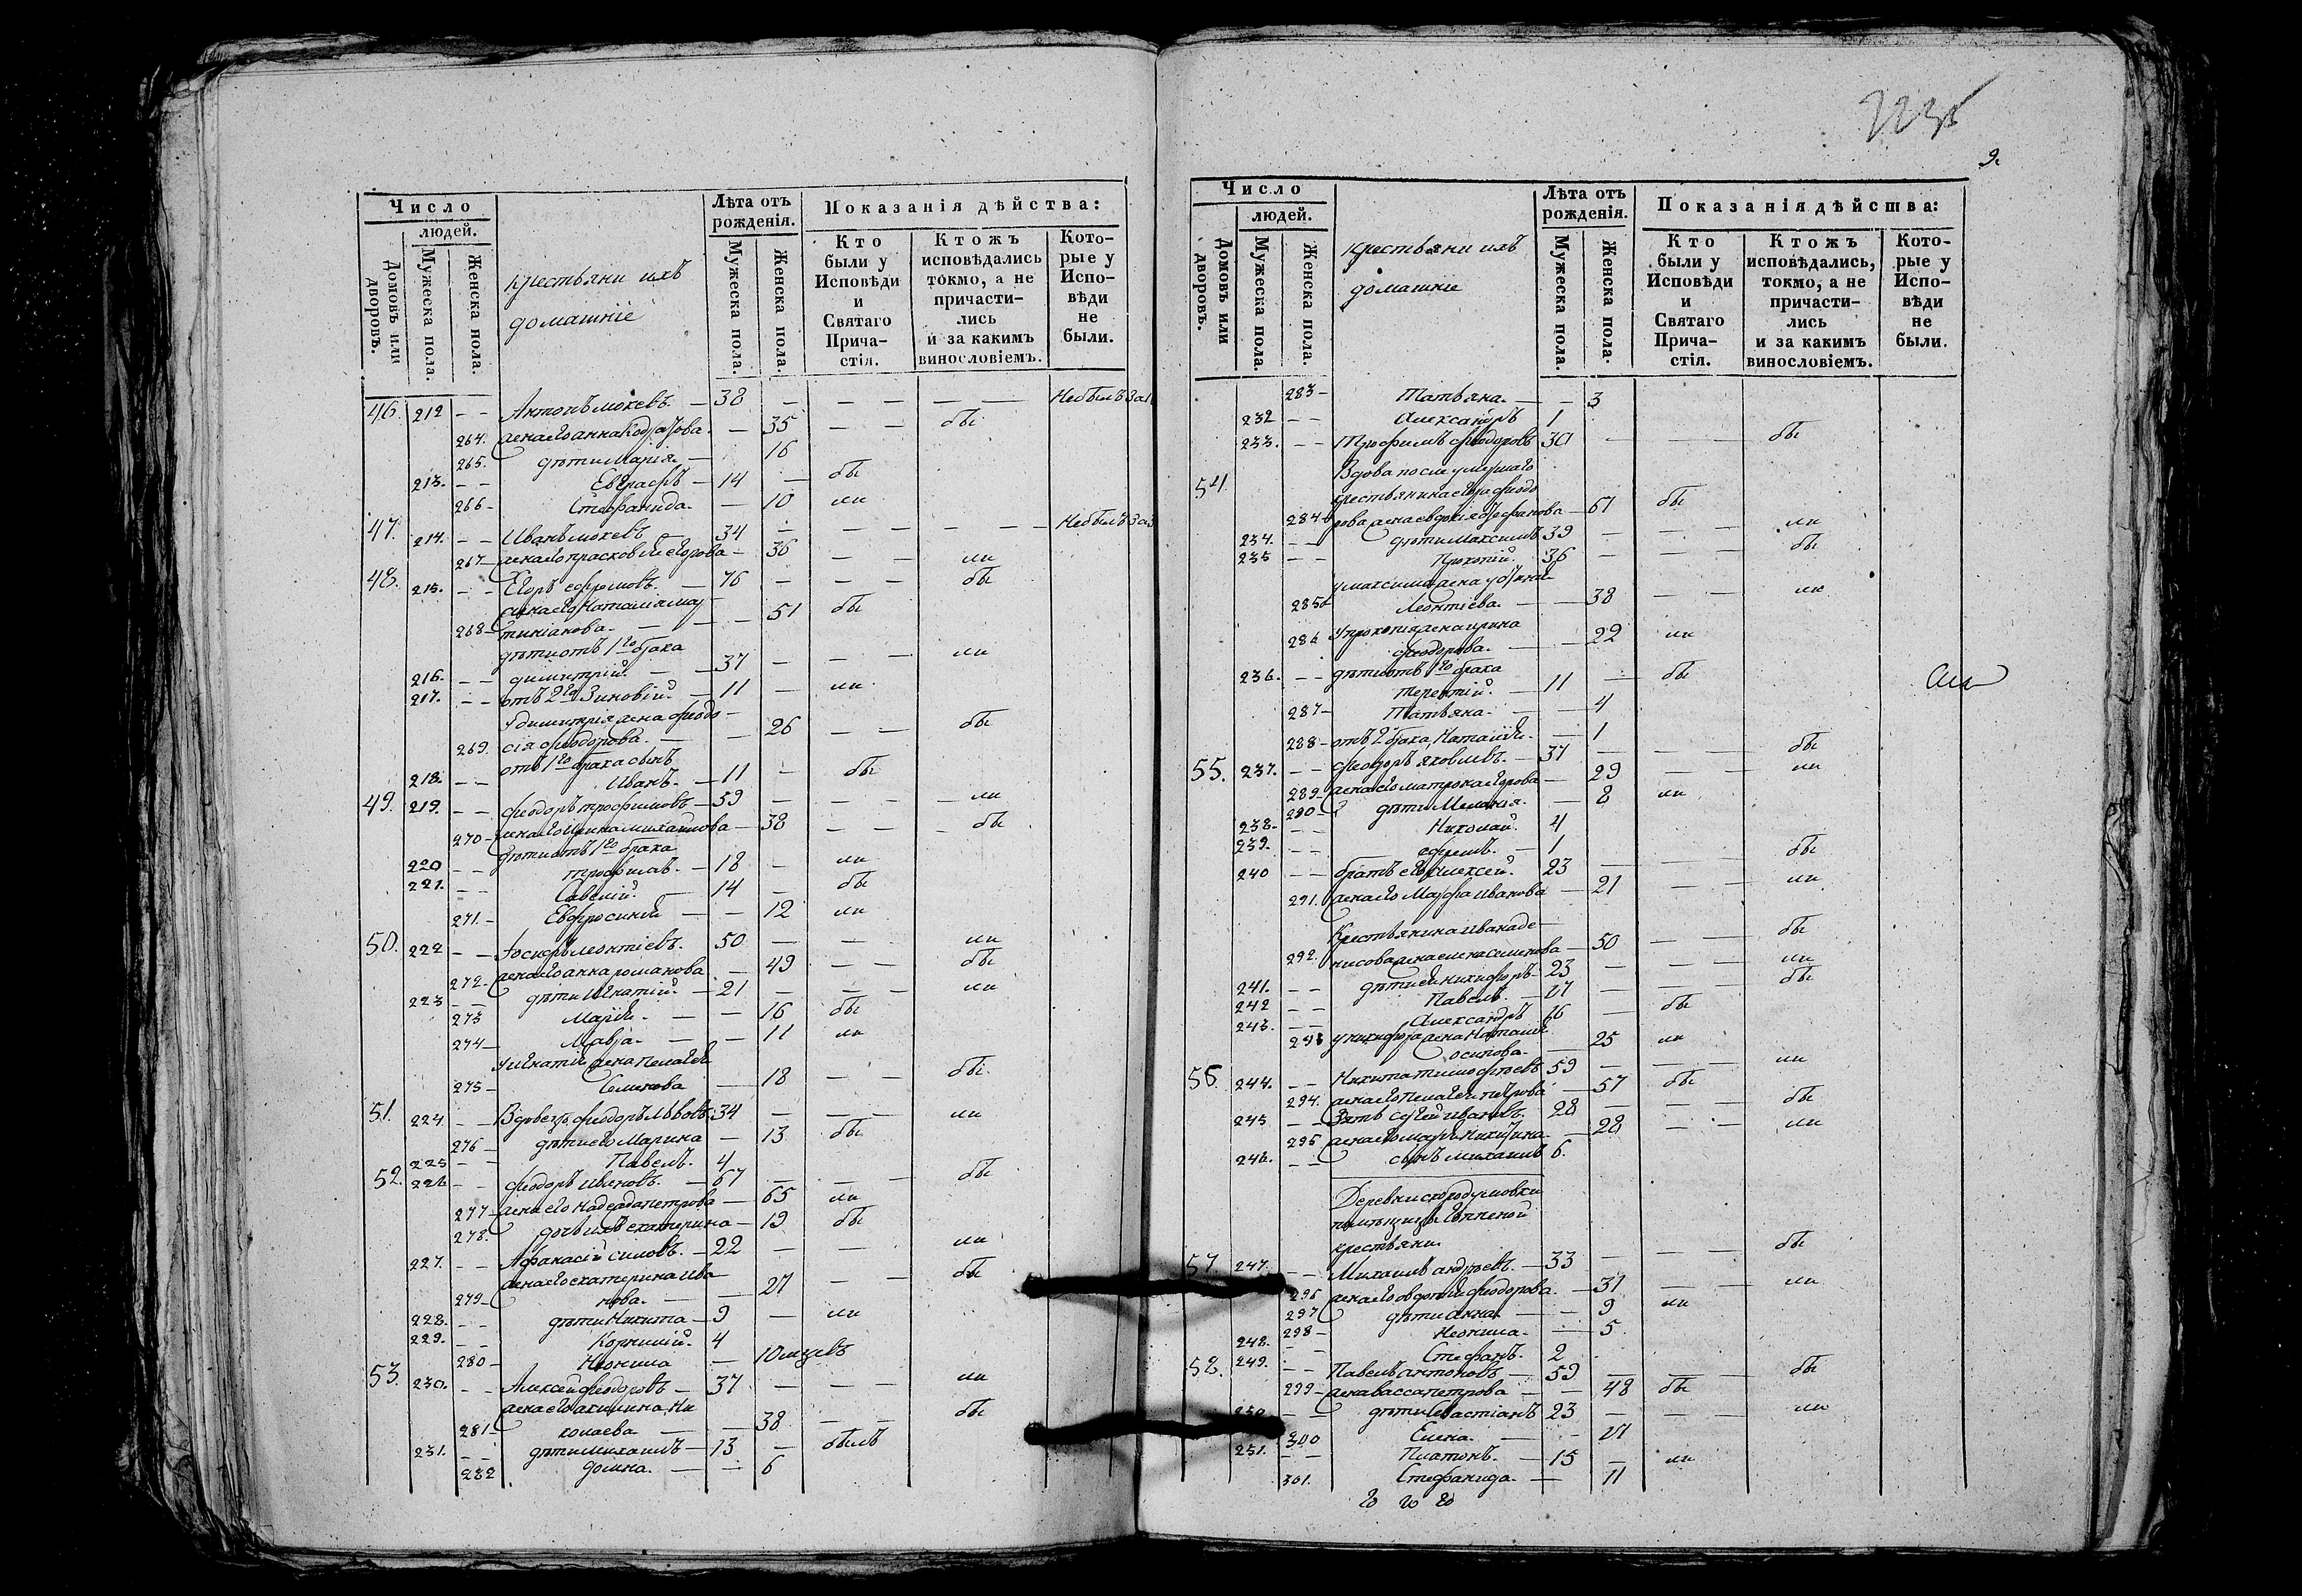 Число
людей.
Домовъ или дворовъ.
Мужеска пола.
Женска пола.
крестьяни ихъ
домашніе
Лѣта отъ рожденія.
Мужеска пола.
Женска пола.
Показанія дѣйства:
Кто были у Исповѣди и Святаго Причастія.
Ктожъ исповѣдались токмо, а не причастились и за какимъ винословіемъ.
Которые у Исповѣди не были.
46. 212 - - Антонъ мокевъ. — 38 — — — — — Небылъ за
264. жена его анна Кодратова. — 35 — — бы
265. дѣти Марія — 16
213. - - Евграфъ — 14 — бы
266 - Стефанида. — 10 ли
47. 214. - - Иванъ мокевъ 34 — — — — — Небылъ за
267 — жена его прасковія егорова — 36 — — ли
48. 215. - - Егоръ ефремовъ. — 76 — — — бы
жена его Наталія мар
268 — тиніанова. — — — 51 бы
дѣти отъ 1го брака
216. - - димитрій. — 37 — — — ли
217. - - отъ 2го Зиновій — 11 — ли
у димитрія жена феодо
269. сія феодорова. — — 26 — — бы
отъ 1го брака сынъ
218. - - Иванъ. — 11 — бы
49. 219. - - феодоръ трофимовъ — 59 — — — — ли
270 — жена его Ирина михаилова — 38 — — — бы
дѣти отъ 1го брака
220 - - трофимъ. — 18 — ли
221. - - Савелій. — 14 — бы
271. - Евфросинія — — 12 ли
50. 222 - - Іосифъ леонтіевъ. 50 — — ли
272. жена его анна романова — 49 — — бы
223 - - дѣти Игнатій. — 21 — — — ли
273 Марія. — — 16 бы
274 — Мавра. — — 11 ли
у игнатія жена пелагея
275 — Семенова — 18 — — бы
51. 224. - - Вдовецъ феодоръ львовъ. 34 — — — ли
276 — дѣти его Марина — 13 бы
225 - - Павелъ. 4
52. 226 - - феодоръ ивановъ. — 67 — — — бы
277 — жена его надежда петрова — 65 ли
278. дочь ихъ екатерина — 19 бы
227. - - Афанасій силовъ. — 22 — — ли
жена его екатерина ива
279 — нова. — — 27 — — бы
228. - - дѣти Никита — 9 — ли
229. - - Корнилій. 4
280 — Неонила — 10 мцевъ
53. 230. - - Алексей феодоровъ — 37 — — — ли
жена его акилина Ни
281 — колаева — — 38 — — бы
231. - - дѣти михаилъ — 13 — былъ
282 домна. — — 6
9.
Число
людей.
Домовъ или дворовъ.
Мужеска пола.
Женска пола.
крестьяни ихъ
домашніе
Лѣта отъ рожденія.
Мужеска пола.
Женска пола.
Показанія дѣйства:
Кто были у Исповѣди и Святаго Причастія.
Ктожъ исповѣдались, токмо, а не причастились и за какимъ винословіемъ.
Которые у Исповѣди не были.
283 — Татьяна. — — 3
232 - - Александръ 1
233. - - Трофимъ феодоровъ 30 — — — бы
54. Вдова после умершаго
крестьянина егора феодо
284 рова жена евдокія стефанова — 61 бы
234. - - дѣти Максимъ 39 — — — ли
235 - - Прокопій. 36 — — — бы
у максима жена
285 Леонтіева. — — 38 — — ли
286 у прокопія жена ирина
феодорова. — — 22 ли
236. - - дѣти отъ 1го брака
терентій. — 11 — бы
287 — Татьяна. — — 4
288 — отъ 2 брака, Наталія. — 1
55. 237. - - феодоръ яковлевъ. — 31 — — — бы
289 — жена его матрона егорова — 29 — — ли
290 — дѣти Меланія. — 8 ли
238. - - Николай. 4
239. - - ефремъ. — 1
240 - - братъ его алексей. 23 — — — бы
291. жена его Марфа иванова — 21 — — ли
Крестьянина ивана де
292. нисова жена елена семенова — 50 — — бы
241. - - дѣти ея никифоръ — 23 — — — ли
242 - - Павелъ. — 21 — — — бы
243. - - Александръ 16 — бы
293 у никифора жена Наталія
осипова. — 25 ли
56. 244. - - Никита тимофеевъ 59 — — — ли
294. жена его пелагея петрова — 57 бы
245 - - Зять сергей ивановъ. 28 — — — бы
295 жена его марья никитина — 28 — — ли
246. - - сынъ михаилъ 6.
Деревни
помѣщицы
крестьяни.
57. 247. - - Михаилъ андреевъ. — 33 — — — бы
296 жена его авдотья феодорова. — 31 — — ли
297 дѣти анна — — 9 ли
298 — Неонила. — — 5
248. - - Стефанъ. 2
58. 249. - - Павелъ антоновъ — 59 — — — бы
299 — жена васса петрова — — 48 бы
250 - - дѣти Севастіанъ 23 — — — ли
300 Елена. — — 21
251. - - Платонъ. — 15 — ли
301. Стефанида. — 11